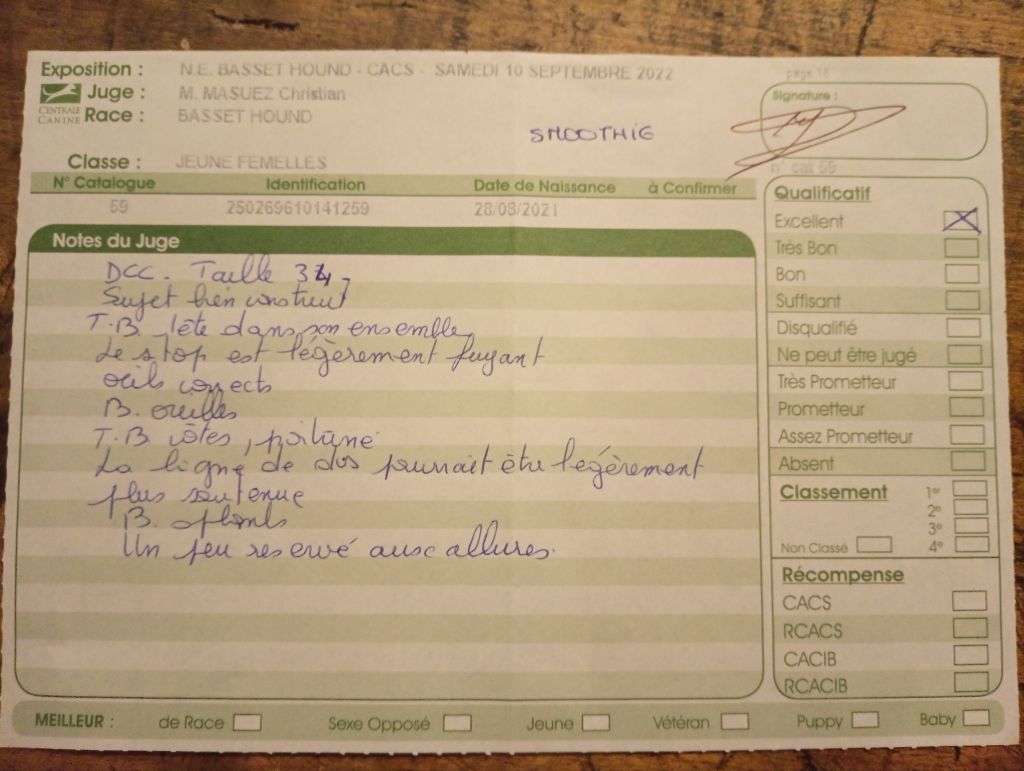 Exposition : N.E. BASSET HOUND - CACS - SAMEDI 10 SEPTEMBRE 2022
page 16
Juge : M. MASUEZ Christian
Signature :
CENTRALE CANINE
Race : BASSET HOUND
SMOOTHIE
Classe : JEUNE FEMELLES
n° cat 59
N° Catalogue Identification Date de Naissance à Confirmer
59 250269610141259 28/08/2021
Notes du Juge
DCC - Taille 34
Sujet bien construit
T.B. tête dans son ensemble
Le stop est légèrement fuyant
oeils corrects
B. oreilles
T.B. côtes, poitrine
La ligne de dos pourrait être légèrement
plus soutenue
B. aplombs
Un peu reservé aux allures.
Qualificatif
Excellent
Très Bon
Bon
Suffisant
Disqualifié
Ne peut être jugé
Très Prometteur
Prometteur
Assez Prometteur
Absent
Classement 1er
2e
3e
Non Classé 4e
Récompense
CACS
RCACS
CACIB
RCACIB
MEILLEUR : de Race Sexe Opposé Jeune Vétéran Puppy Baby